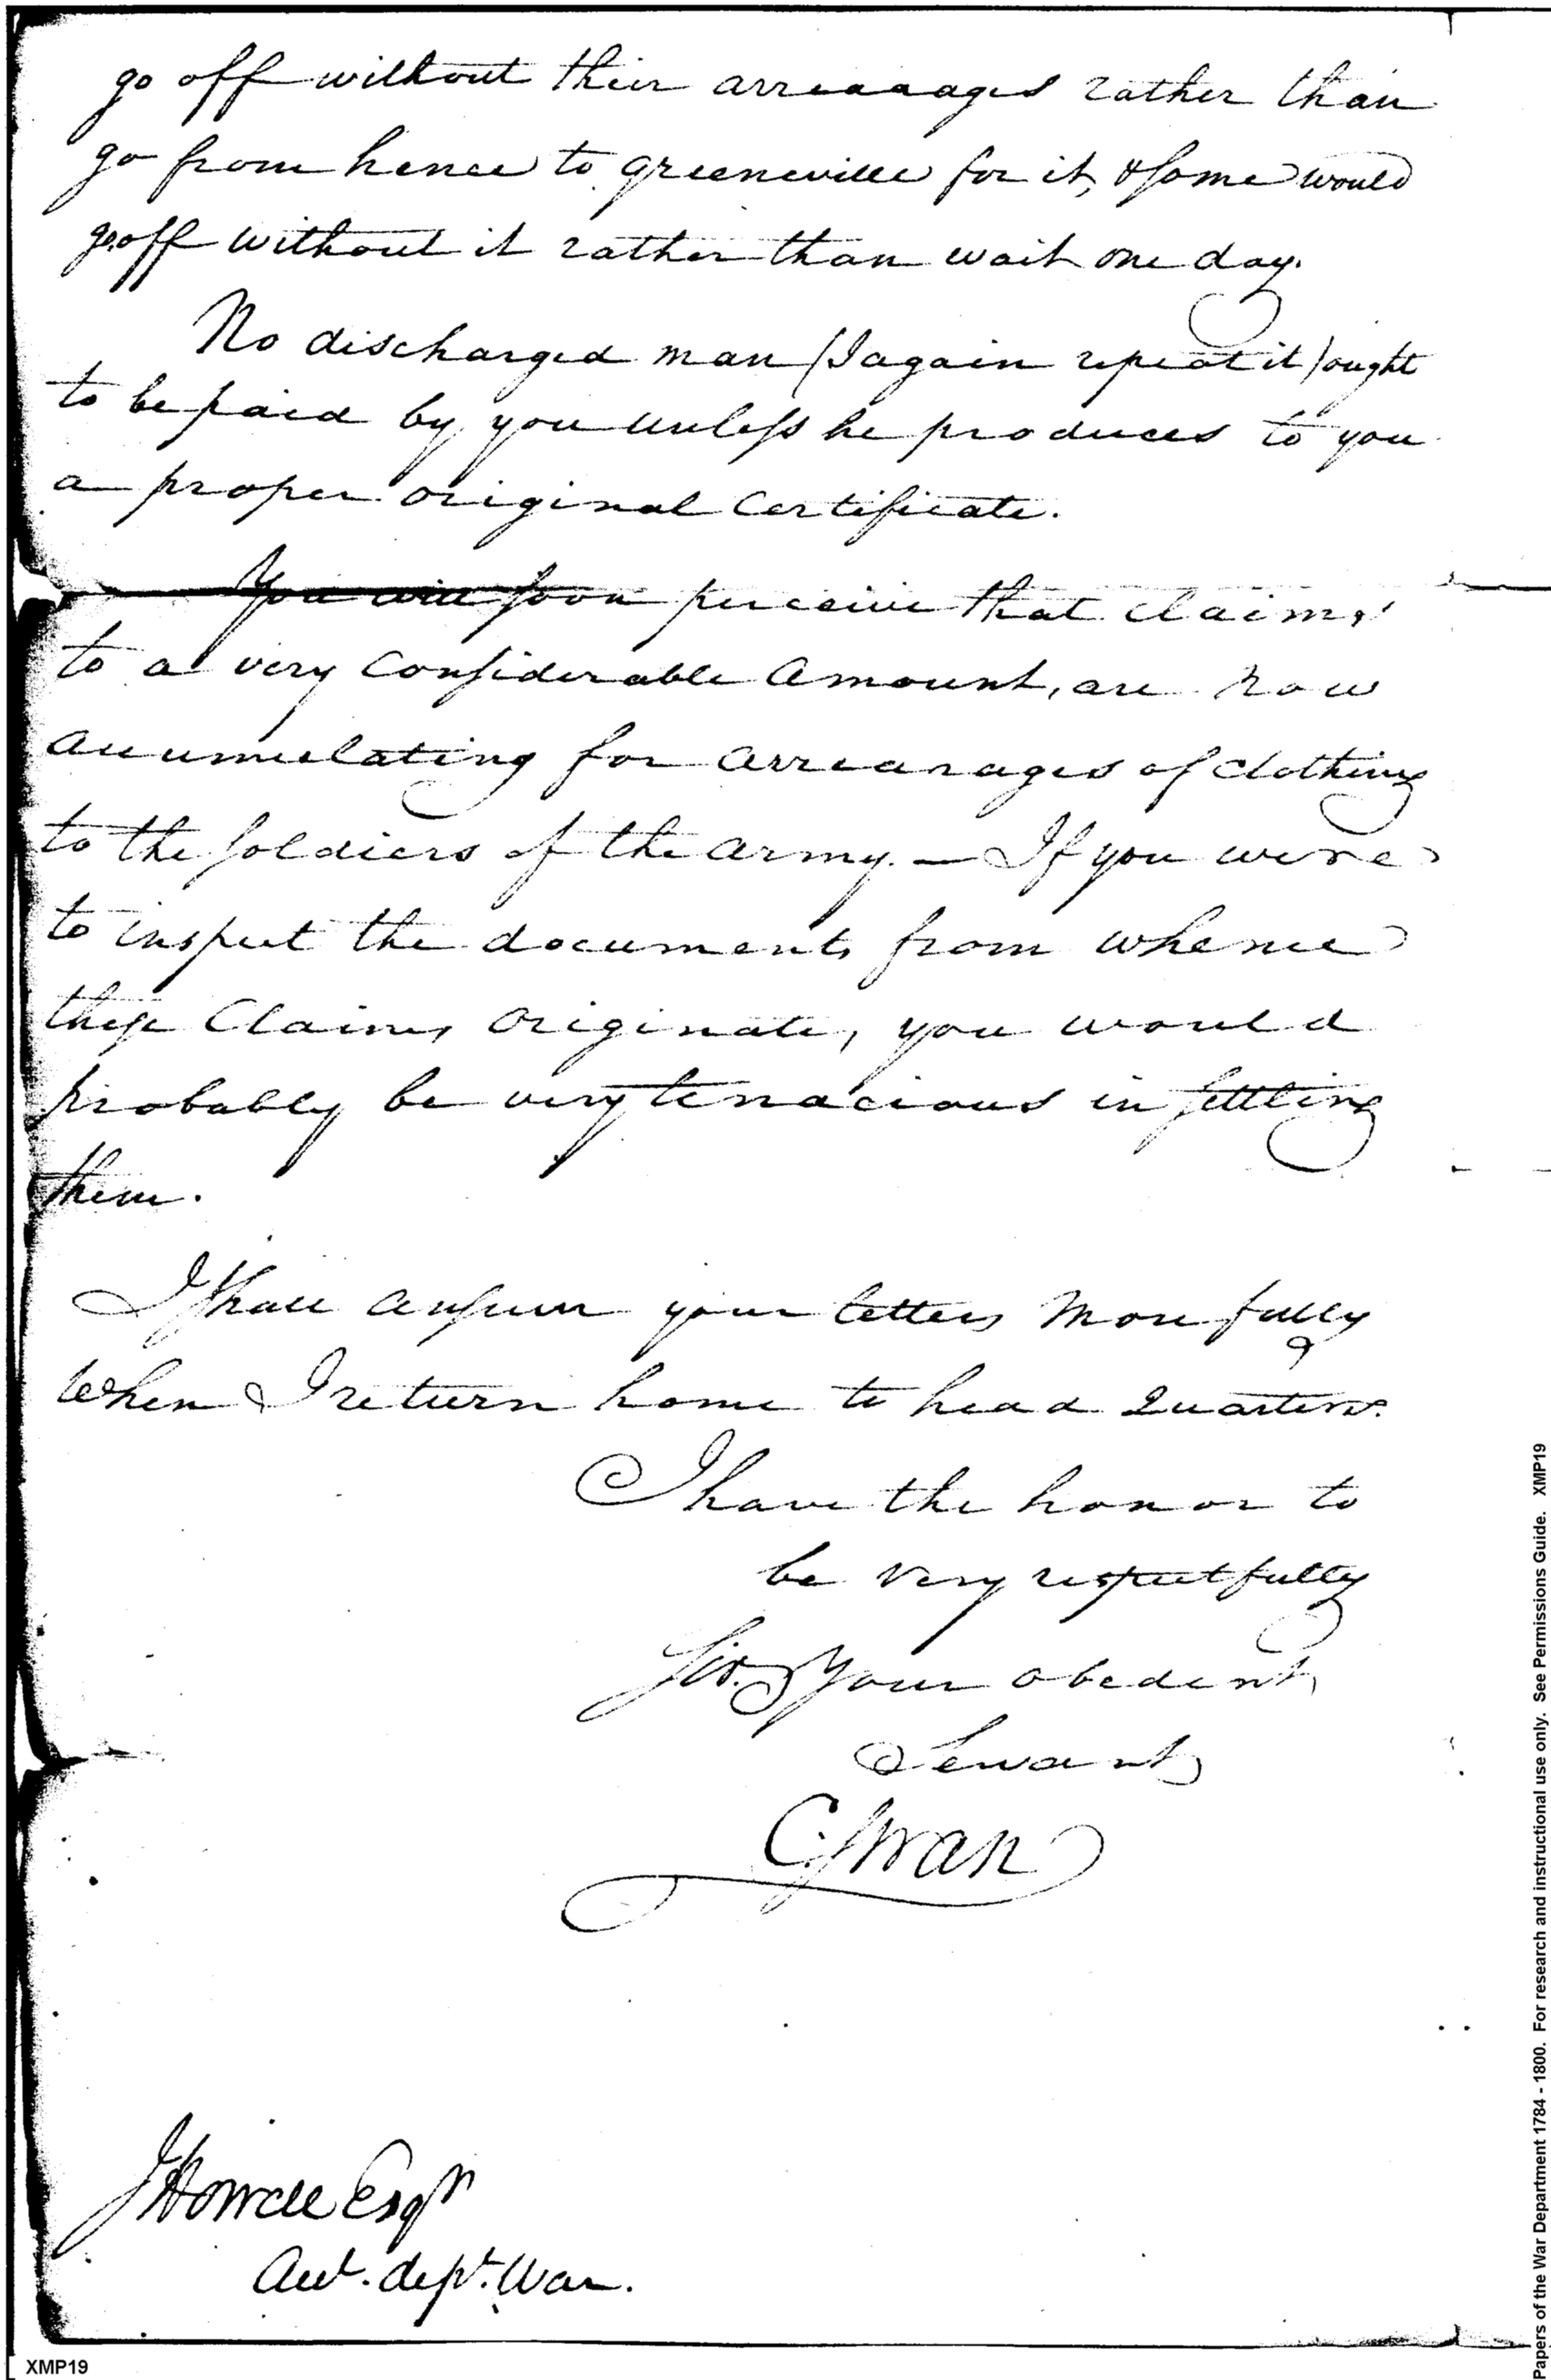 go off without their arrearages rather than
go from hence to greeneville for it, & some would
go off without it rather than wait one day.
No discharged man (I again repeat it) ought
to be paid by you unless he produces to you
a proper original Certificate.
You will soon perceive that claims
to a very Considerable amount, are now
accumulating for arrearages of clothing
to the soldiers of the army. — If you were
to inspect the documents from whence
these Claims originate, you would
probably be very tenacious in settling
them.
I shall answer your letters more fully
when I return home to head Quarters.
I have the honor to
be very respectfully
Sir. Your obedent
Servant
C. Swan
J Howell Esqr
Acct. dept. War.
XMP19
Papers of the War Department 1784 - 1800. For research and instructional use only. See Permissions Guide. XMP19